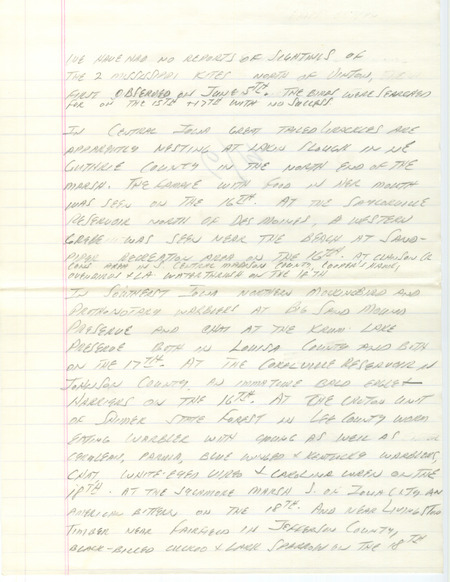 WE HAVE HAD NO REPORTS OF SIGHTINGS OF
THE 2 MISSISSIPPI KITES NORTH OF VINTON,
FIRST OBSERVED ON JUNE 5TH. THE BIRDS WERE SEARCHED
FOR ON THE 15TH & 17TH WITH NO SUCCESS
IN CENTRAL IOWA GREAT TAILED GRACKLES ARE
APPARENTLY NESTING AT LAKIN SLOUGH IN NE
GUTHRIE COUNTY IN THE NORTH END OF THE
MARSH. THE FEMALE WITH FOOD IN HER MOUTH
WAS SEEN ON THE 16TH. AT THE SAYLORVILLE
RESERVOIR NORTH OF DES MOINES, A WESTERN
GREBE WAS SEEN NEAR THE BEACH AT SAND-
PIPER RECREATION AREA ON THE 16TH. AT
CONS. AREA IN S. CENTRAL MADISON COUNTY COOPER'S HAWK,
OVENBIRDS & LA. WATERTHRUSH ON THE 18TH
IN SOUTHEAST IOWA NORTHERN MOCKINGBIRD AND
PROTHONOTARY WARBLERS AT BIG SAND MOUND
PRESERVE AND CHAT AT THE KRUM LAKE
PRESERVE BOTH IN LOUISA COUNTY AND BOTH
ON THE 17TH. AT THE CORALVILLE RESERVOIR IN
JOHNSON COUNTY, AN IMMATURE BALD EAGLE &
HARRIERS ON THE 16TH. AT THE CROTON UNIT
OF SHIMEK STATE FOREST IN LEE COUNTY WORM
EATING WARBLER WITH YOUNG AS WELL AS
CERULEAN, PARULA, BLUE WINGED & KENTUCKY WARBLERS,
CHAT, WHITE-EYED VIREO & CAROLINA WREN ON THE
18TH. AT THE SYCAMORE MARSH S. OF IOWA CITY AN
AMERICAN BITTERN ON THE 18TH. AND NEAR LIVINGSTON
TIMBER NEAR FAIRFIELD IN JEFFERSON COUNTY,
BLACK-BILLED CUCKOO & LARK SPARROW ON THE 18TH